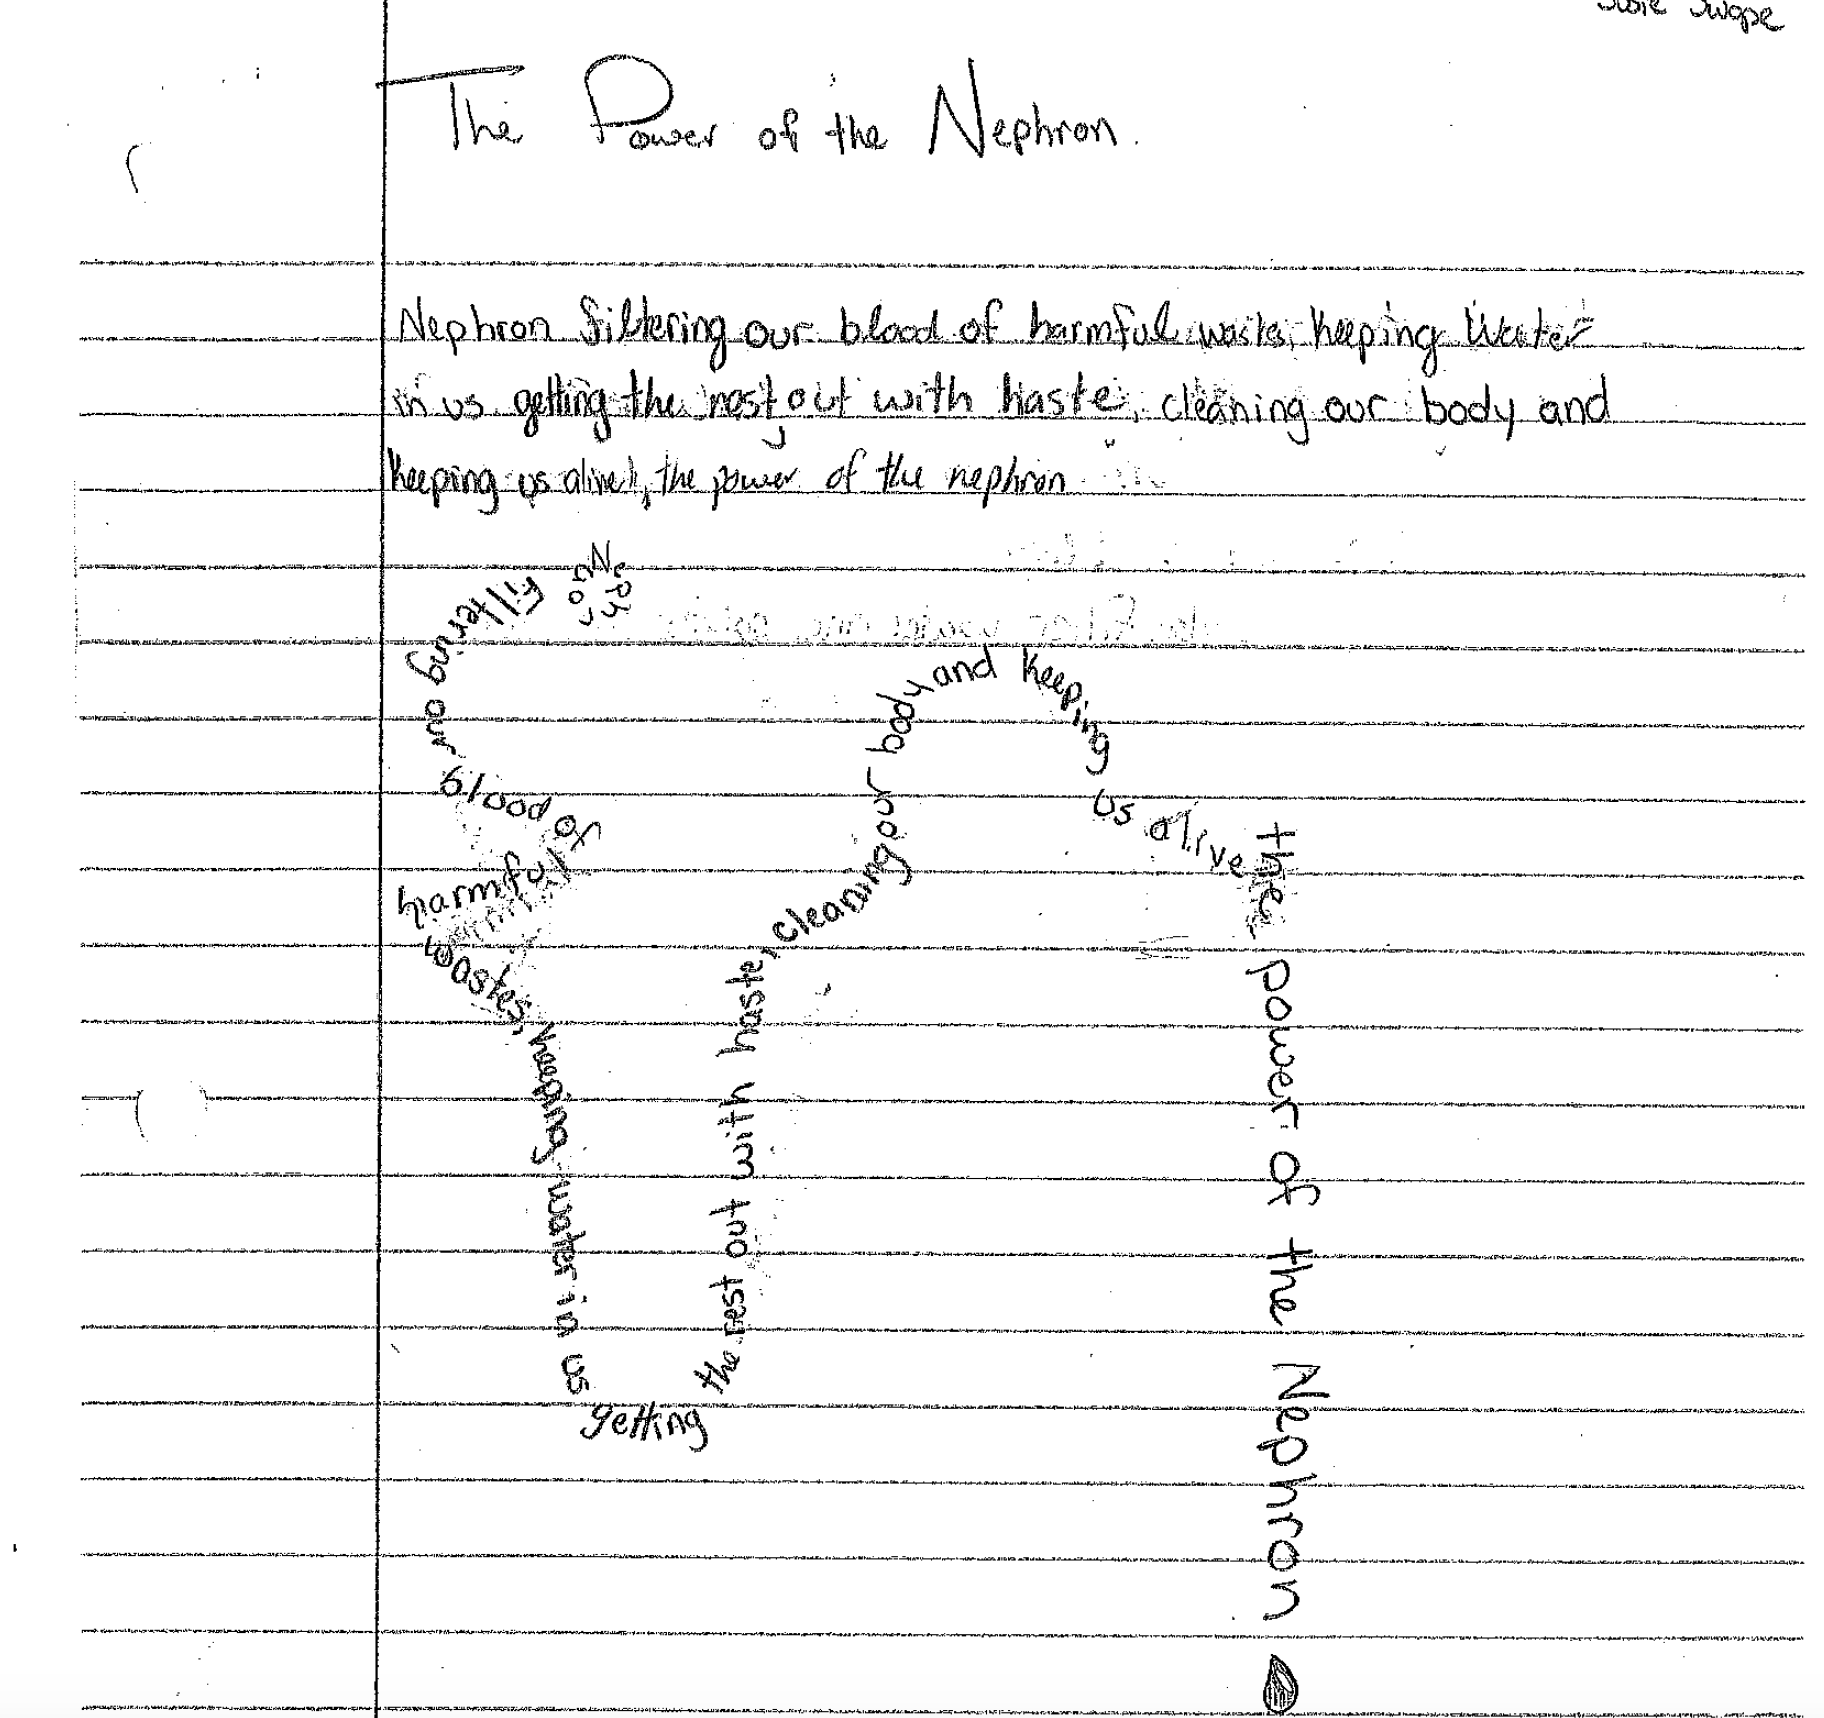 Susie Swope
The Power of the Nephron.
Nephron filtering our blood of harmful wastes, keeping water
in us getting the rest out with haste, cleaning our body and
keeping us alive, the power of the nephron
Nephron
filtering our
blood of
harmful
wastes,
keeping water in us
getting
the rest out with haste,
cleaning our body and keeping
us alive
the power of the Nephron